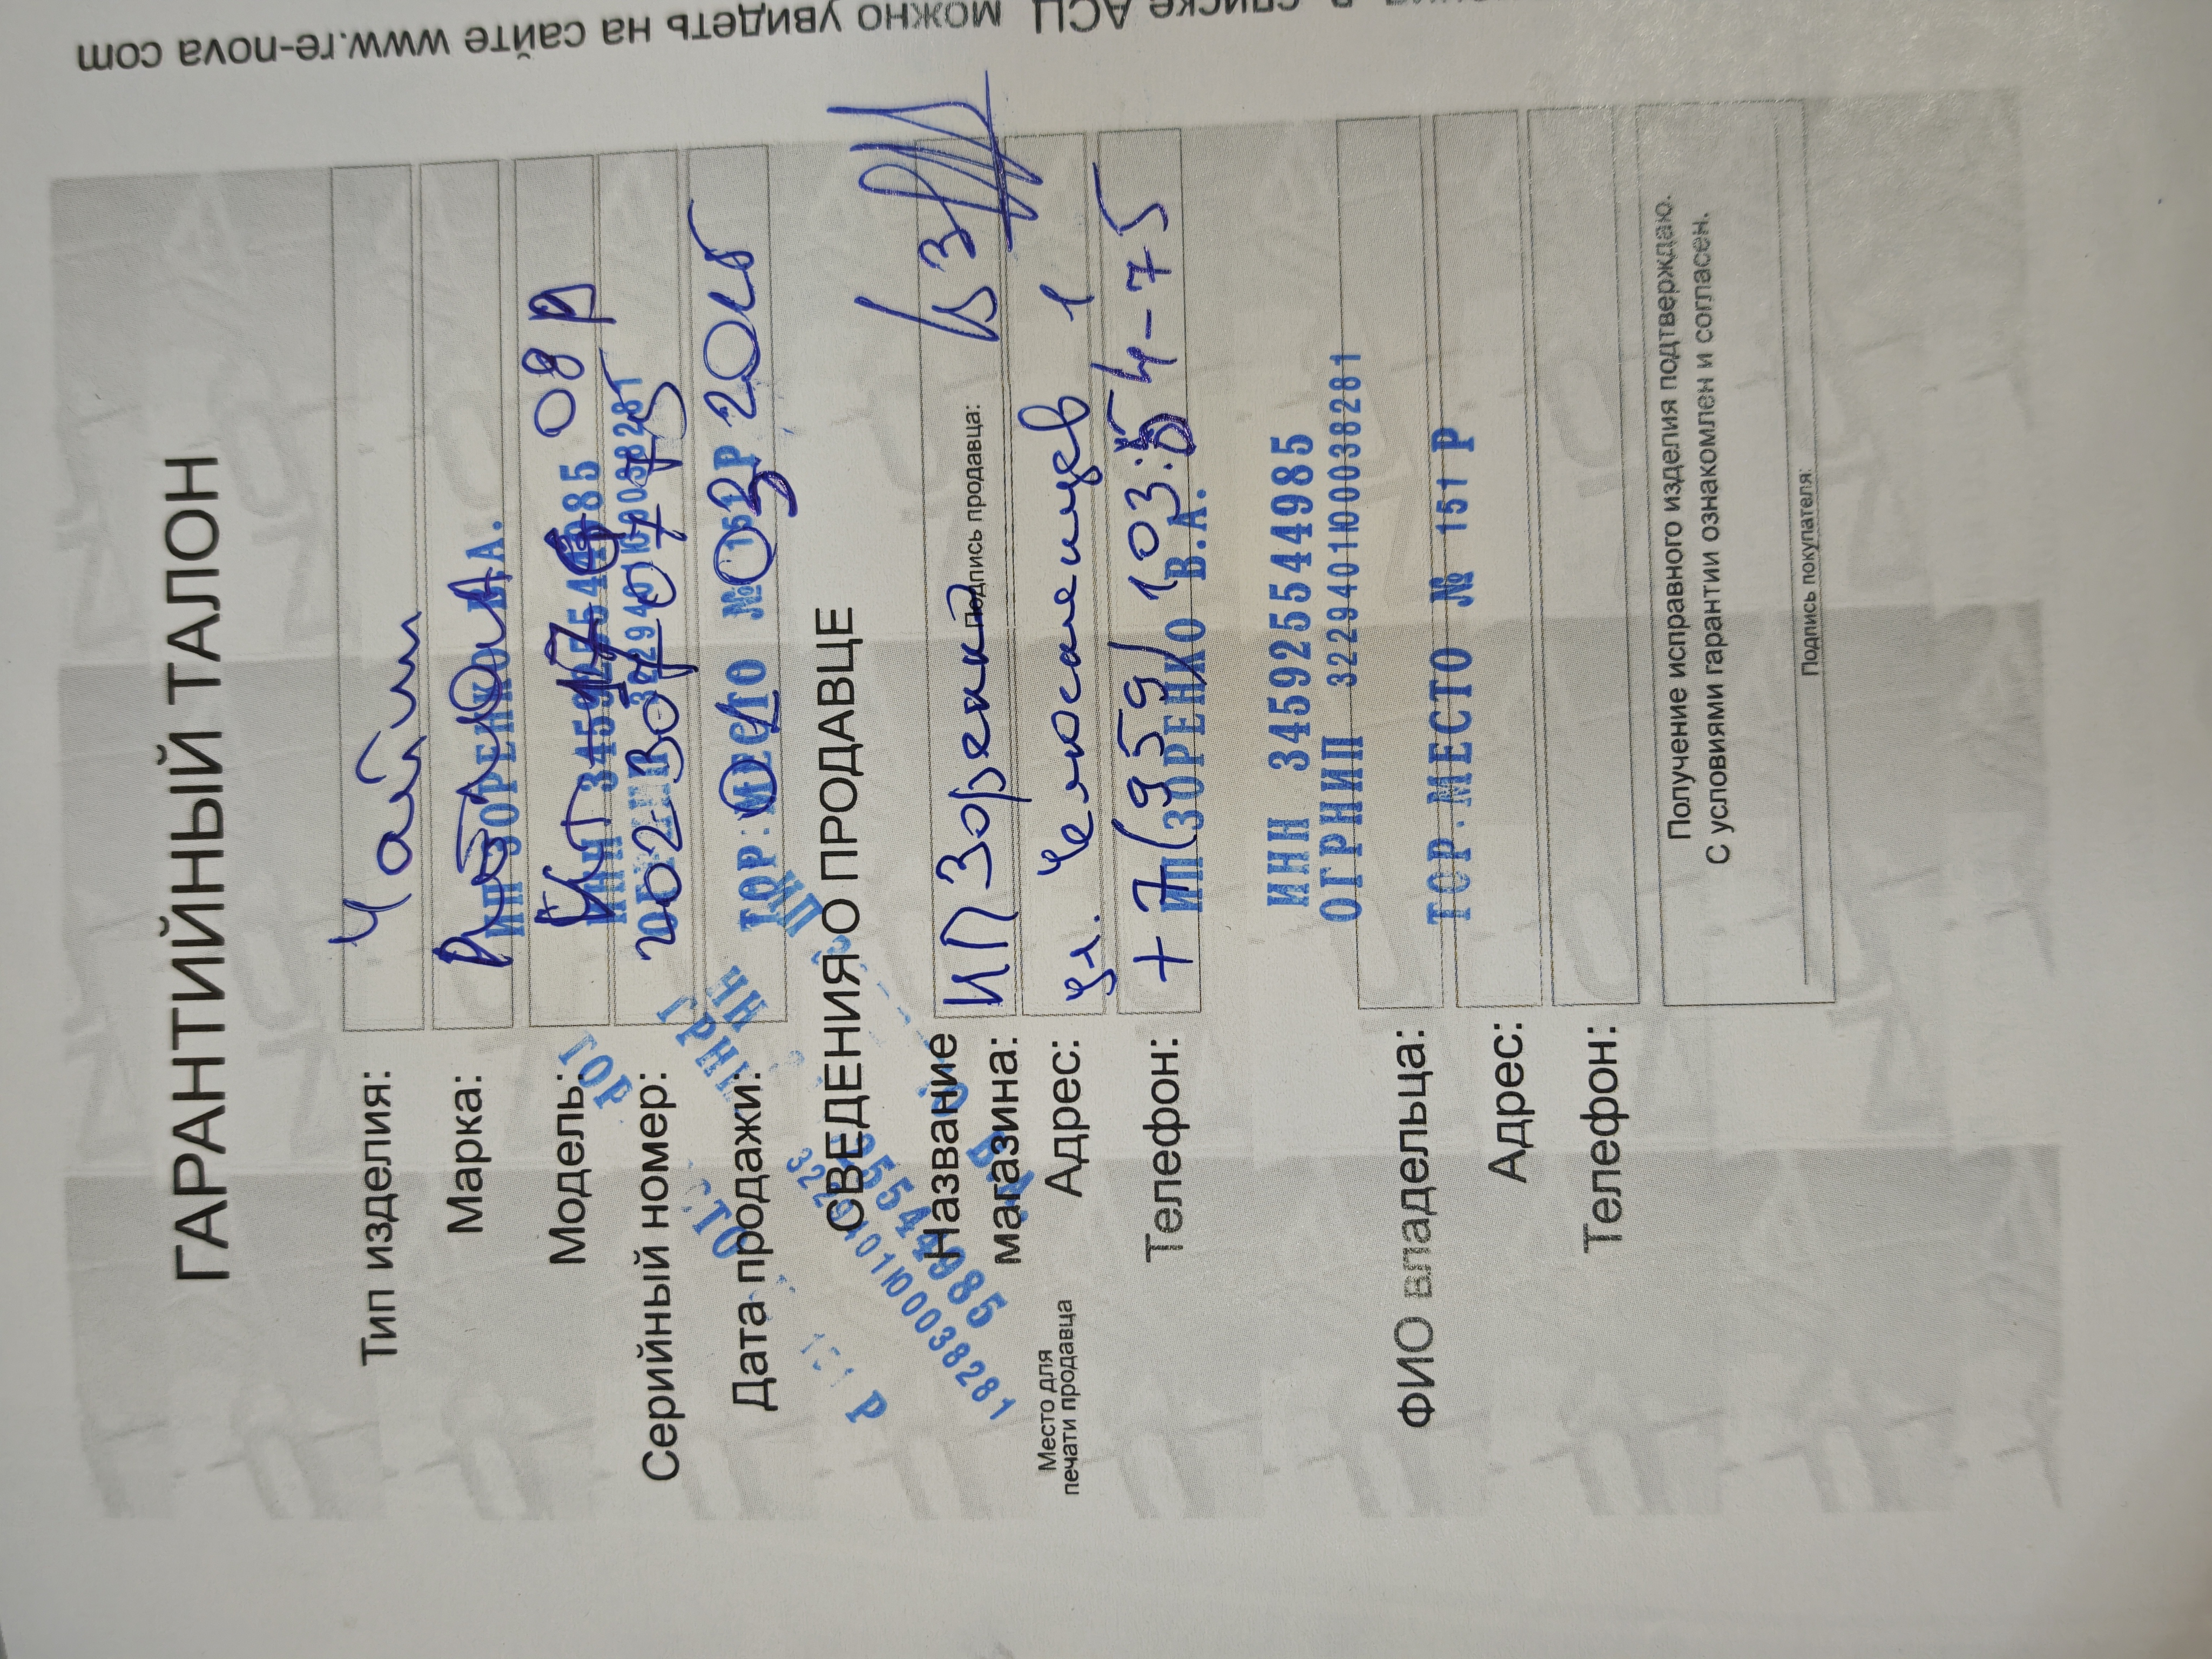 списке АСЦ можно увидеть на сайте www.re-nova com
ГАРАНТИЙНЫЙ ТАЛОН
Тип изделия: Чайник
Марка:
ИП ЗОРЕНКО В.А.
Модель: 08 А
ИНН 345925544985
Серийный номер: 202307
ОГРНИП 3229401100038281
Дата продажи: 01 03 202
ТОР.МЕСТО № 151 Р
СВЕДЕНИЯ О ПРОДАВЦЕ
Название магазина: ИП Зоренко
Подпись продавца:
Адрес: ул. Челюскинцев 1
Телефон: +7(959) 103-54-75
ИП ЗОРЕНКО В.А.
Место для
печати продавца
ИНН 345925544985
ОГРНИП 3229401100038281
ТОР.МЕСТО № 151 Р
ФИО владельца:
Адрес:
Телефон:
Получение исправного изделия подтверждаю.
С условиями гарантии ознакомлен и согласен.
Подпись покупателя: